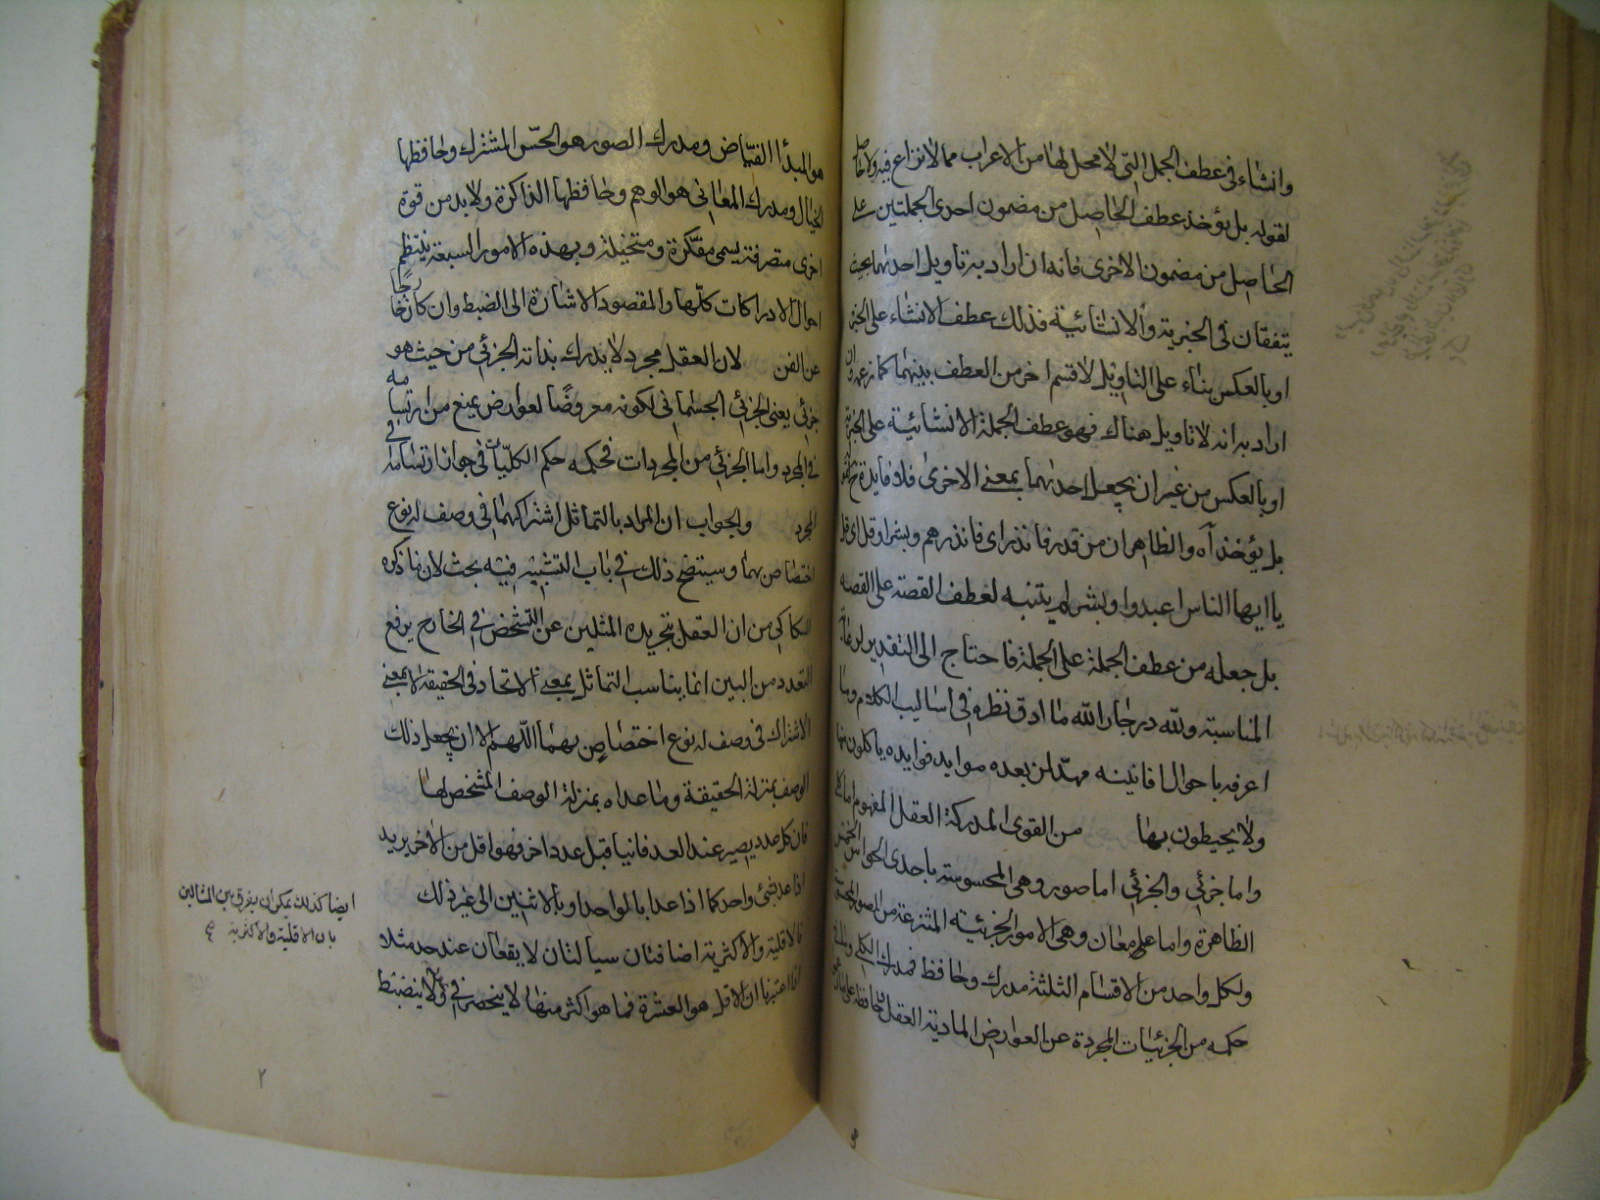 وانشاء في عطف الجمل التى لا محل لها من الاعراب مما لا نزاع فيه ولا حاصل
لقوله بل يؤخذ عطف الحاصل من مضمون احدى الجملتين على
الحاصل من مضمون الاخرى فانه ان اراد به تاويل احدىهما بحيث
يتفقان فى الخبرية والانشائية فذلك عطف الانشاء على الخبر
او بالعكس بناء على التاويل لا قسم اخر من العطف بينهما كما زعمه وان
اراد به انه لا تاويل هناك فهو عطف الجملة الانشائية على الخبرية
او بالعكس من غير ان يجعل احدىهما بمعنى الاخرى فلا فايدة ح لقوله
بل يؤخذ آه والظاهر ان من قدر فانذر اى فانذرهم وبشر او قل اى قل
يا ايها الناس اعبدوا وبشر لم يتنبه لعطف القصة على القصة
بل جعله من عطف الجملة على الجملة فاحتاج الى التقدير لرعاية
المناسبة ولله در جار الله ما ادق نظره فى اساليب الكلام وما
اعرفه باحوال افانينه مهد لمن بعده موايد فوايده ياكلون منها
ولا يحيطون بها من القوى المدركة العقل المفهوم اما كلى
واما جزئي والجزئي اما صور وهى المحسوسة باحدى الحواس الخمس
الظاهرة واما معان وهى الامور الجزئية المنتزعة من الصور المحسوسة
ولكل واحد من الاقسام الثلثة مدرك وحافظ فمدرك الكلى وما فى
حكمه من الجزئيات المجردة عن العوارض المادية العقل وحافظه على ما
هو المبدأ الفياض ومدرك الصور هو الحس المشترك وحافظها
الخيال ومدرك المعانى هو الوهم وحافظها الذاكرة ولا بد من قوة
اخرى متصرفة يسمى مفكرة ومتخيلة وبهذه الامور السبعة ينتظم
احوال الادراكات كلها والمقصود الاشارة الى الضبط وان كان خارجا
عن الفن لان العقل مجرد لا يدرك بذاته الجزئي من حيث هو
جزئى يعنى الجزئي الجسمانى لكونه معروضا لعوارض يمنع من ارتسامه
فى المجرد واما الجزئي من المجردات فحكمه حكم الكليات فى جواز ارتسامه فى
المجرد والجواب ان المراد بالتماثل اشتراكهما فى وصف له نوع
اختصاص بهما وسيتضح ذلك فى باب التشبيه فيه بحث لان ما ذكره
السكاكى من ان العقل بتجريده المثلين عن التشخص فى الخارج يرفع
التعدد من البين انما يناسب التماثل بمعنى الاتحاد فى الحقيقة لا بمعنى
الاشتراك فى وصف له نوع اختصاص بهما اللهم الا ان يجعل ذلك
الوصف بمنزلة الحقيقة وما عداه بمنزلة الوصف المشخص لها
فان كل عدد يصير عند العد فانيا قبل عدد اخر فهو اقل من الاخر يريد
اذا عد شئ واحد كما اذا عد بالواحد او بالاثنين الى غير ذلك
فالاقلية والاكثرية اضافتان سيالتان لا يقعان عند حد مثلا
اذا اعتبرنا ان الاقل هو العشرة فما هو اكثر منها لا ينحصر فى ولا ينضبط
ايضا كذلك يمكن ان يفرق بين المثالين
بان الاقلية والاكثرية
٢